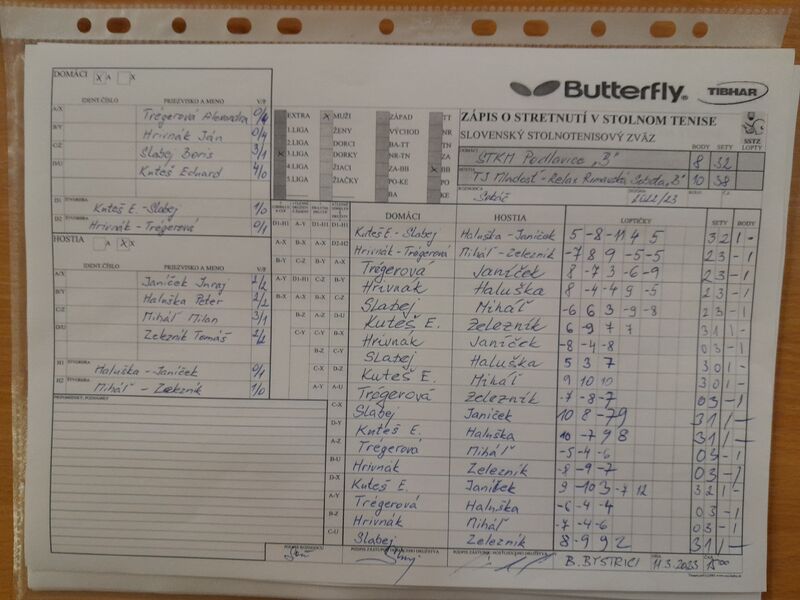 DOMÁCI X A X
IDENT.ČÍSLO PRIEZVISKO A MENO V/P
A/X Trégerová Alexandra 0/4
B/Y Hrivnák Ján 0/4
C/Z Slabej Boris 3/1
D/U Kuteš Eduard 4/0
D1 ŠTVORHRA Kuteš E. - Slabej 1/0
D2 ŠTVORHRA Hrivnák - Trégerová 0/1
HOSTIA A X X
IDENT.ČÍSLO PRIEZVISKO A MENO V/P
A/X Janíček Juraj
B/Y Haluška Peter 2/2
C/Z Miháľ Milan 3/1
D/U Zelezník Tomáš
H1 ŠTVORHRA Haluška - Janíček 0/1
H2 ŠTVORHRA Miháľ - Zelezník 1/0
PRIPOMIENKY, POZNÁMKY
Butterfly TIBHAR
EXTRA X MUŽI ZÁPAD TT
1.LIGA ŽENY VÝCHOD NR
2.LIGA DORCI BA-TT TN
X 3.LIGA DORKY NR-TN ZA
4.LIGA ŽIACI ZA-BB X BB
5.LIGA ŽIAČKY PO-KE PO
BA KE
ZÁPIS O STRETNUTÍ V STOLNOM TENISE
SLOVENSKÝ STOLNOTENISOVÝ ZVÄZ
SSTZ
BODY SETY LOPTY
STKM Podlavice "B" 8 32
TJ Mladosť - Relax Rimavská Sobota "B" 10 38
2022/23
DOMÁCI HOSTIA LOPTIČKY SETY BODY
Kuteš - Slabej Haluška - Janíček 5 -8 -11 4 5 3 2 1 -
Hrivnák - Trégerová Miháľ - Zelezník -7 8 9 -5 -5 2 3 - 1
Trégerova Janíček 8 -7 3 -6 -9 2 3 - 1
Hrivnak Haluška 8 -4 -4 9 -5 2 3 - 1
Slabej Miháľ -6 6 3 -9 -8 2 3 - 1
Kuteš E. Železník 6 9 7 7 3 1 1 -
Hrivnák Janíček -8 -4 -8 0 3 - 1
Slabej Haluška 5 3 7 3 0 1 -
Kuteš E. Miháľ 9 10 10 3 0 1 -
Trégerová Zelezník -7 -8 -7 0 3 - 1
Slabej Janíček 10 8 -7 9 3 1 / -
Kuteš E. Haluška 10 -7 9 8 3 1 / -
Trégerová Miháľ -5 -4 -6 0 3 - 1
Hrivnák Zelezník -8 -9 -7 0 3 - 1
Kuteš E. Janíček 9 -10 3 -7 12 3 2 1 -
Trégerová Haluška -6 -4 -4 0 3 - 1
Hrivnák Miháľ -7 -4 -6 0 3 - 1
Slabej Zelezník 8 -9 9 2 3 1 / -
B. BYSTRICI 11.3.2023